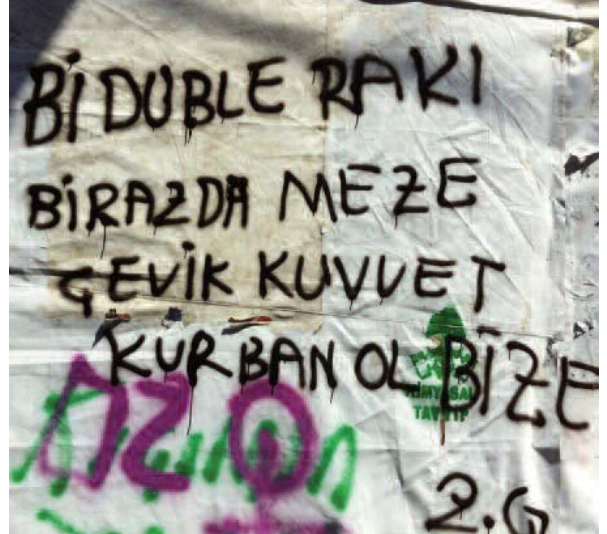 Bİ DUBLE RAKI
BİRAZDA MEZE
ÇEVİK KUVVET
KURBAN OL BİZE
2.G